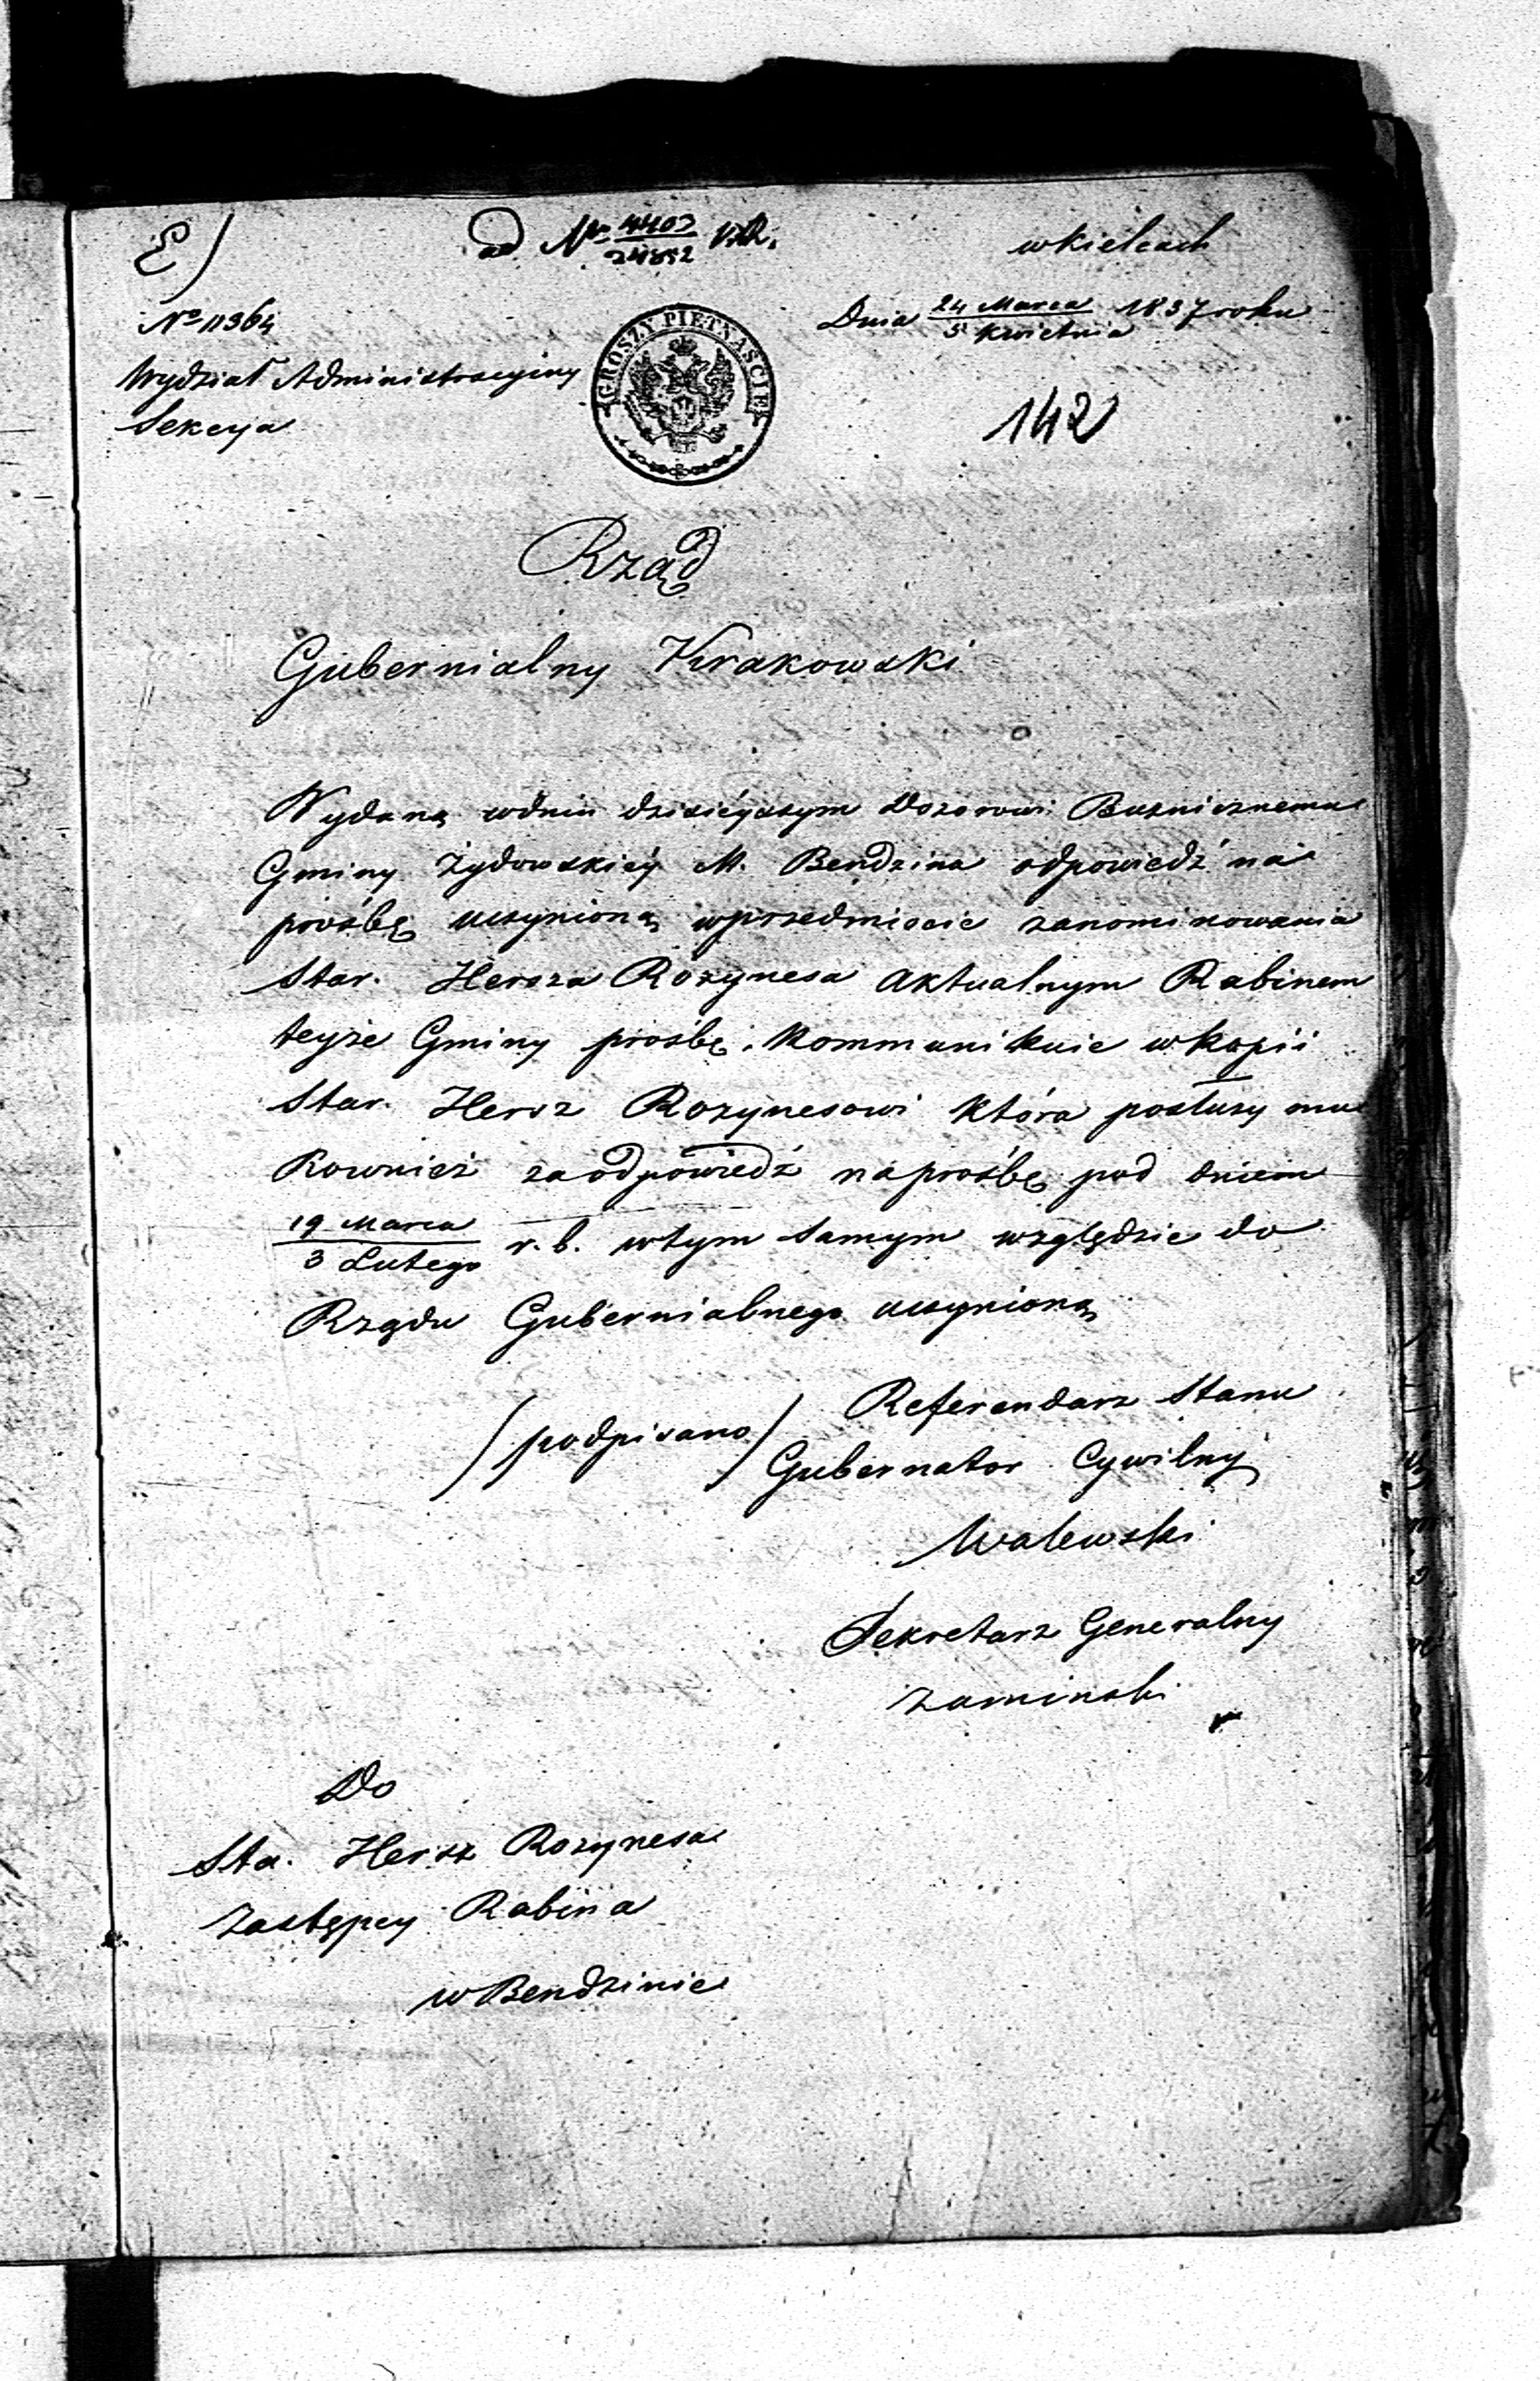 E)
ad Nr 4403/24852
w Kielcach
No 11364
Dnia 24 Marca/5 Kwietnia 1837 roku
Wydział Administracyiny
Sekcya
GROSZY PIĘTNAŚCIE
142
Rząd
Gubernialny Krakowski
Wydaną wdniu dzisieyszym Dozorowi Buznicznemu
Gminy Żydowskiéy M. Bendzina odpowiedź na
prośbę uczynioną wprzedmiocie zanominowania
Star. Hersza Rozynesa Aktualnym Rabinem
teyże Gminy prośbę, Kommunikuie w Kopii
Star. Hersz Rozynesowi która posłuży mu
Rownież za odpowiedź na prośbę pod dniem
19 Marca/3 Lutego r. b. wtym samym względzie do
Rządu Gubernialnego uczynioną
/podpisano/ Referendarz Stanu
Gubernator Cywilny
Walewski
Sekretarz Generalny
Do
Sta. Hersz Rozynesa
Zastępcy Rabina
w Bendzinie